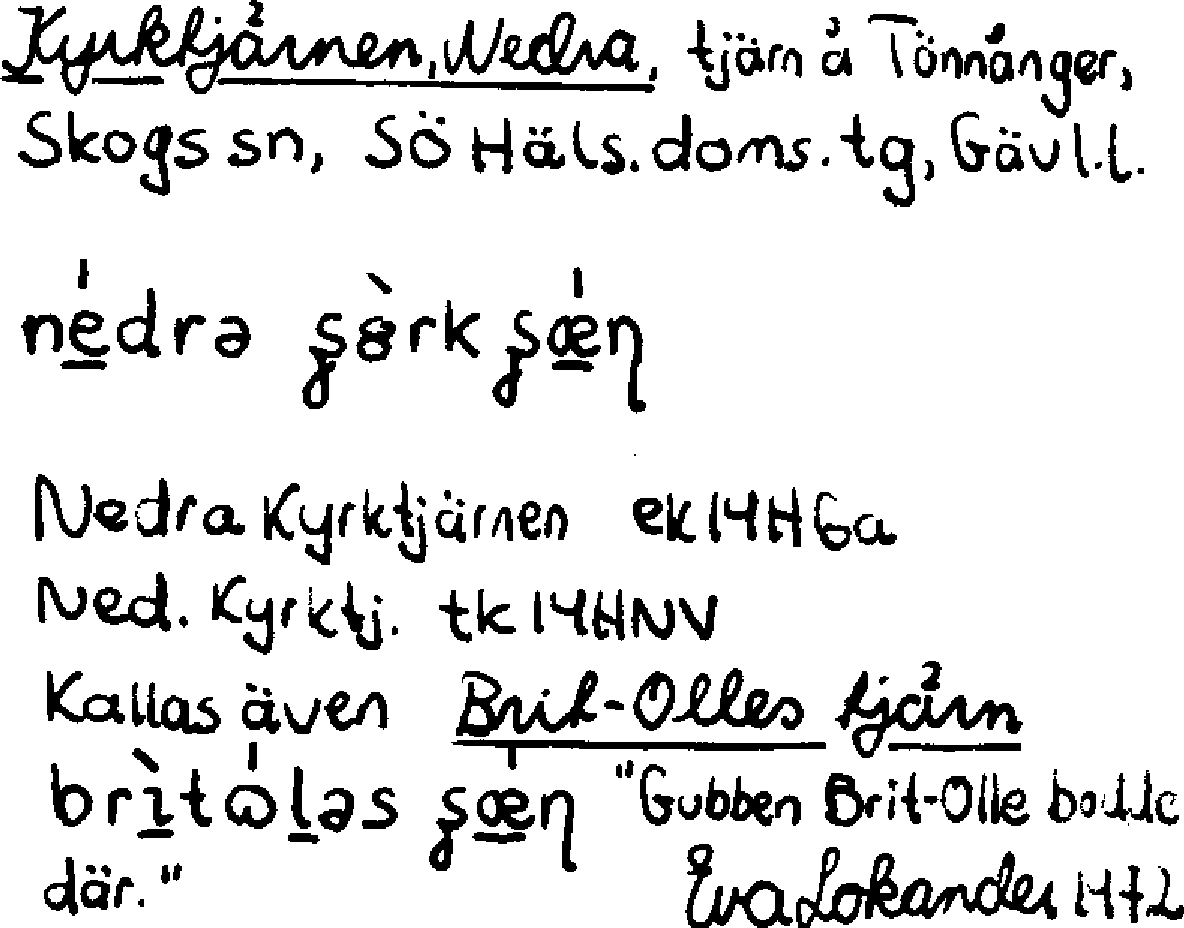 Kyrktjärnen, Nedra, tjärn å Tönnånger,
Skogs sn, SÖ Häls. doms. tg, Gävl. l.
nédrə
Nedra Kyrktjärnen ek 14H6a
Ned. Kyrktj. tk 14HNV
Kallas även Brit-Olles tjärn
"Gubben Brit-Olle bodde
där." Eva Lokander 1972